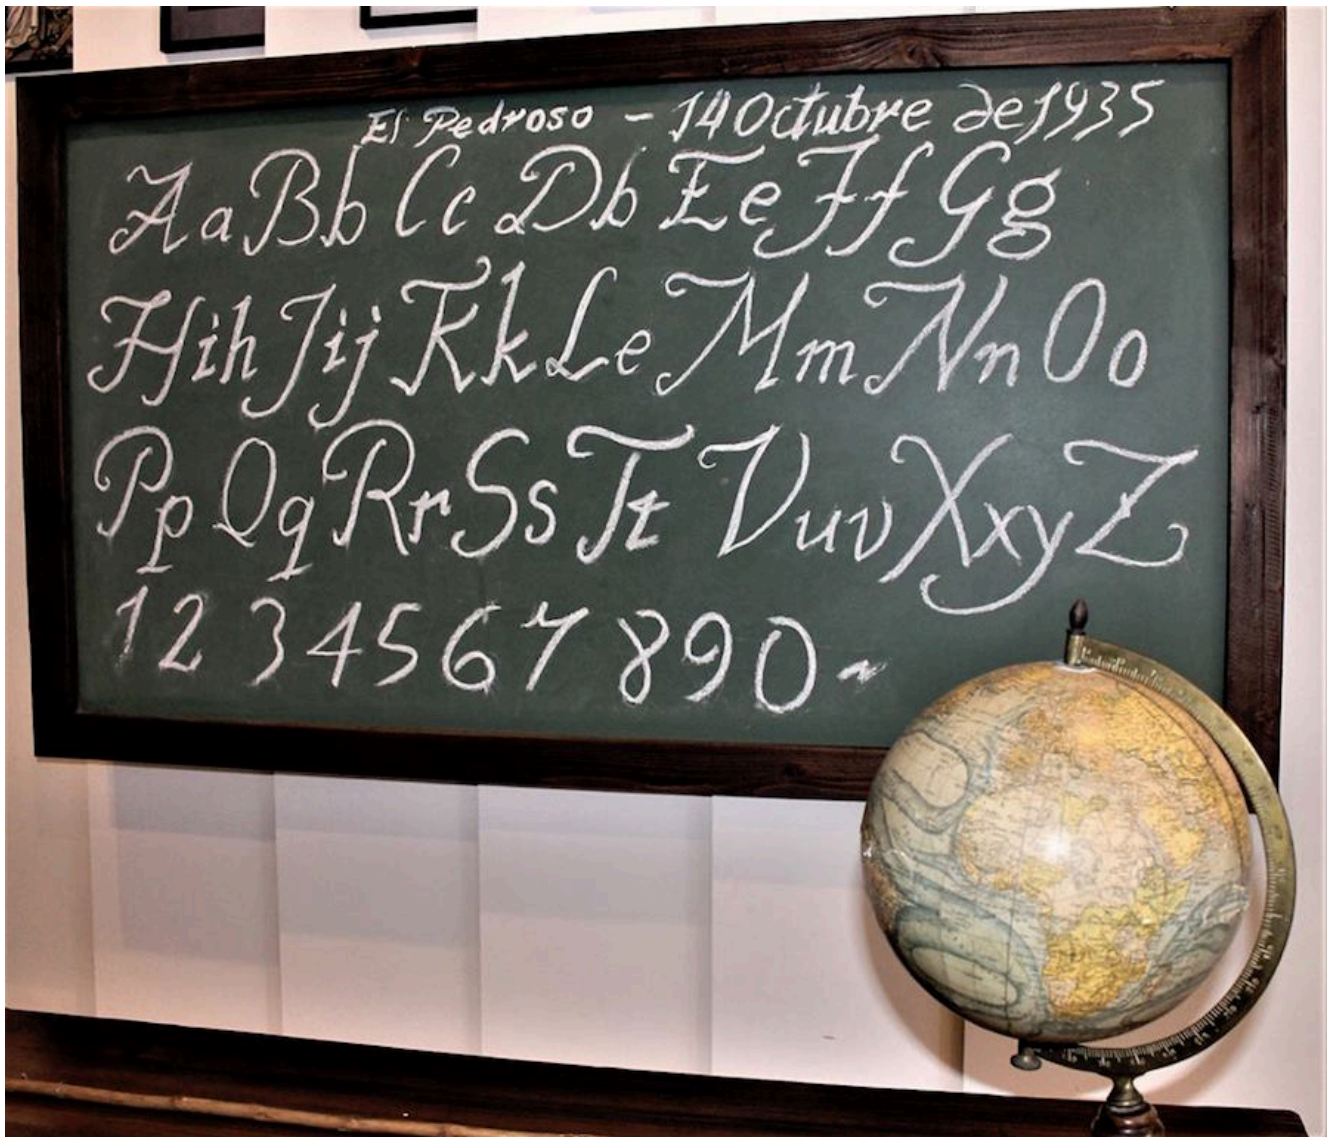 El Pedroso - 14 Octubre de 1935
A a B b C c D b E e F f G g
H i h J i j K k L e M m N n O o
P p Q q R r S s T t V u v X x y Z
1 2 3 4 5 6 7 8 9 0 ~